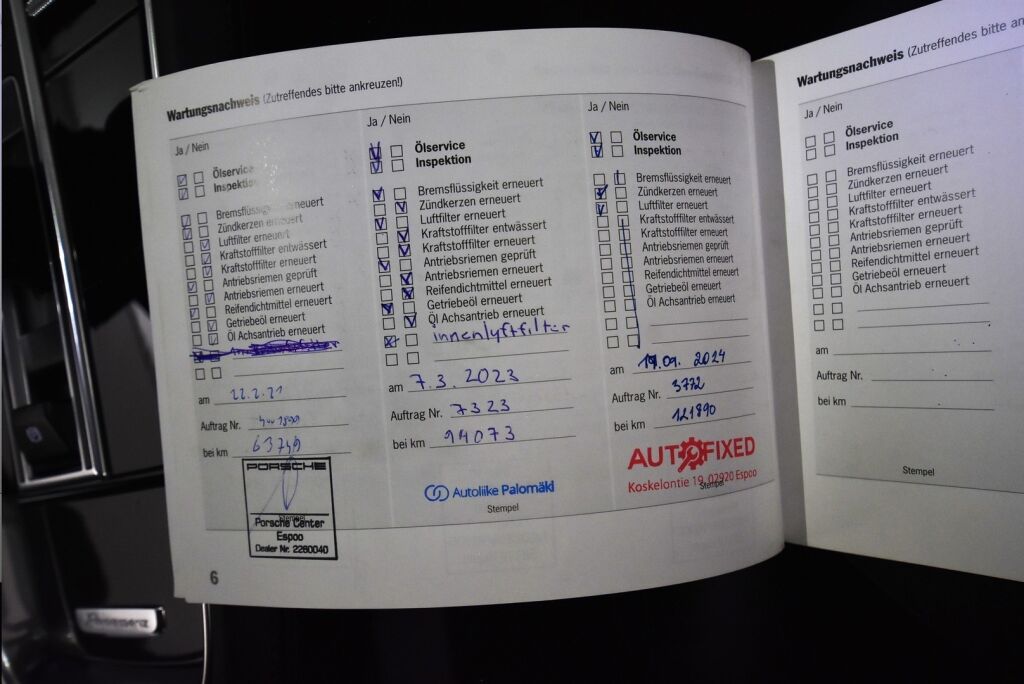 Wartungsnachweis (Zutreffendes bitte ankreuzen!)
Ja / Nein
Ölservice
Inspektion
Bremsflüssigkeit erneuert
Zündkerzen erneuert
Luftfilter erneuert
Kraftstofffilter entwässert
Kraftstofffilter erneuert
Antriebsriemen geprüft
Antriebsriemen erneuert
Reifendichtmittel erneuert
Getriebeöl erneuert
Öl Achsantrieb erneuert
am 22.2.21
Auftrag Nr.
bei km 63749
PORSCHE
Stempel
Porsche Center
Espoo
Dealer Nr. 2260040
6
Ja / Nein
Ölservice
Inspektion
Bremsflüssigkeit erneuert
Zündkerzen erneuert
Luftfilter erneuert
Kraftstofffilter entwässert
Kraftstofffilter erneuert
Antriebsriemen geprüft
Antriebsriemen erneuert
Reifendichtmittel erneuert
Getriebeöl erneuert
Öl Achsantrieb erneuert
innenlyftfilter
am 7.3.2023
Auftrag Nr. 7323
bei km 94073
Autoliike Palomäki
Stempel
Ja / Nein
Ölservice
Inspektion
Bremsflüssigkeit erneuert
Zündkerzen erneuert
Luftfilter erneuert
Kraftstofffilter entwässert
Kraftstofffilter erneuert
Antriebsriemen geprüft
Antriebsriemen erneuert
Reifendichtmittel erneuert
Getriebeöl erneuert
Öl Achsantrieb erneuert
am 19.09.2024
Auftrag Nr. 3772
bei km 121890
AUTOFIXED
Koskelontie 19, 02920 Espoo
Stempel
Wartungsnachweis (Zutreffendes bitte an
Ja / Nein
Ölservice
Inspektion
Bremsflüssigkeit erneuert
Zündkerzen erneuert
Luftfilter erneuert
Kraftstofffilter entwässert
Kraftstofffilter erneuert
Antriebsriemen geprüft
Antriebsriemen erneuert
Reifendichtmittel erneuert
Getriebeöl erneuert
Öl Achsantrieb erneuert
am
Auftrag Nr.
bei km
Stempel
Panamera